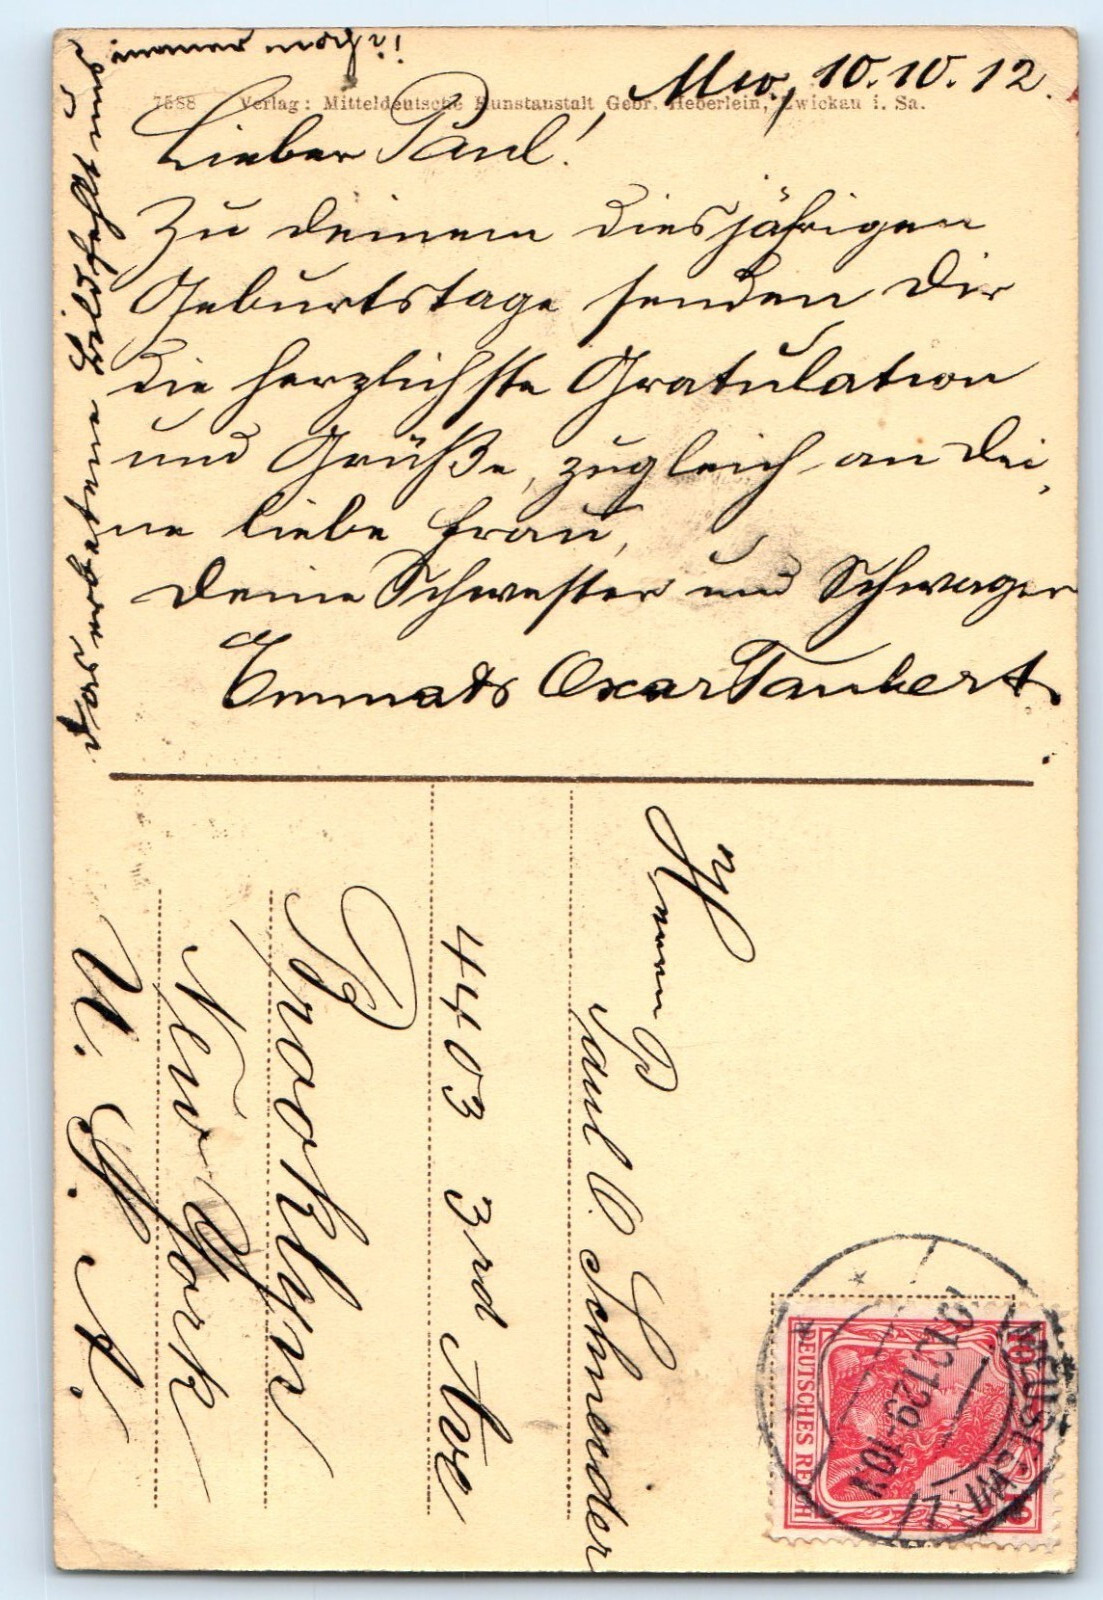 7588 Verlag: Mitteldeutsche Kunstanstalt Gebr. Heberlein, Zwickau i. Sa.
10.10.12.
Lieber Paul!
Zu deinem diesjährigen
Geburtstage senden Dir
die herzlichste Gratulation
und Grüße, zugleich an Dei,
ne liebe Frau,
Deine Schwester und Schwager
Oscar Taubert.
das erbetene Bild fehlt uns
immer noch!
Herrn
Paul O. Schneider
4403 3rd Ave
Brooklyn
New York
U. S. A.
DEUTSCHES REICH
10
10